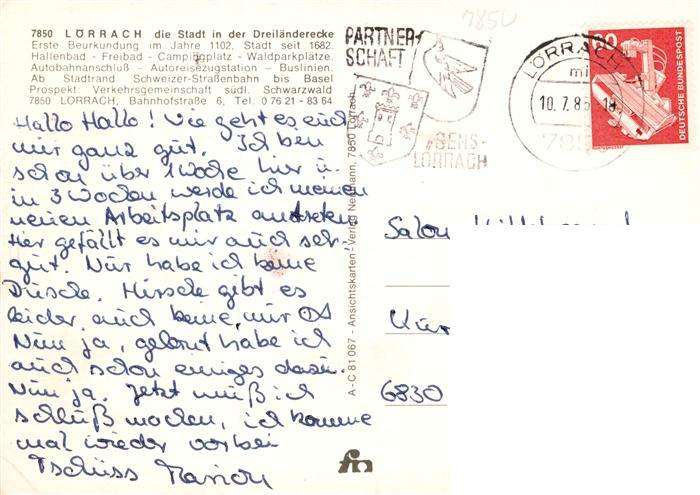 7850
7850 LÖRRACH die Stadt in der Dreiländerecke
Erste Beurkundung im Jahre 1102, Stadt seit 1682.
Hallenbad - Freibad - Campingplatz - Waldparkplätze.
Autobahnanschluß - Autoreisezugstation - Buslinien.
Ab Stadtrand Schweizer-Straßenbahn bis Basel
Prospekt: Verkehrsgemeinschaft südl. Schwarzwald
7850 LÖRRACH, Bahnhofstraße 6, Tel. 0 76 21 - 83 64
Hallo Hallo! Wie geht es euch
mir ganz gut. Ich ben
schon über 1 Woche hier u.
in 3 Wochen werde ich meinen
neuen Arbeitsplatz antreten.
Hier gefällt es mir auch sehr
gut. Nur habe ich keine
Hirsche gibt es
leider auch keine, nur
Nun ja, gelernt habe ich
auch schon einiges dazu.
Nun ja. Jetzt muß ich
schluß machen, ich komme
mal wieder vorbei
Tschüss Marion
A-C 81 067 - Ansichtskarten-Verlag Neumann, 7850 Lörrach
PARTNER-
SCHAFT
SENS-
LÖRRACH
LÖRRACH 1
10.7.85
785
80
DEUTSCHE BUNDESPOST
Salon
6830